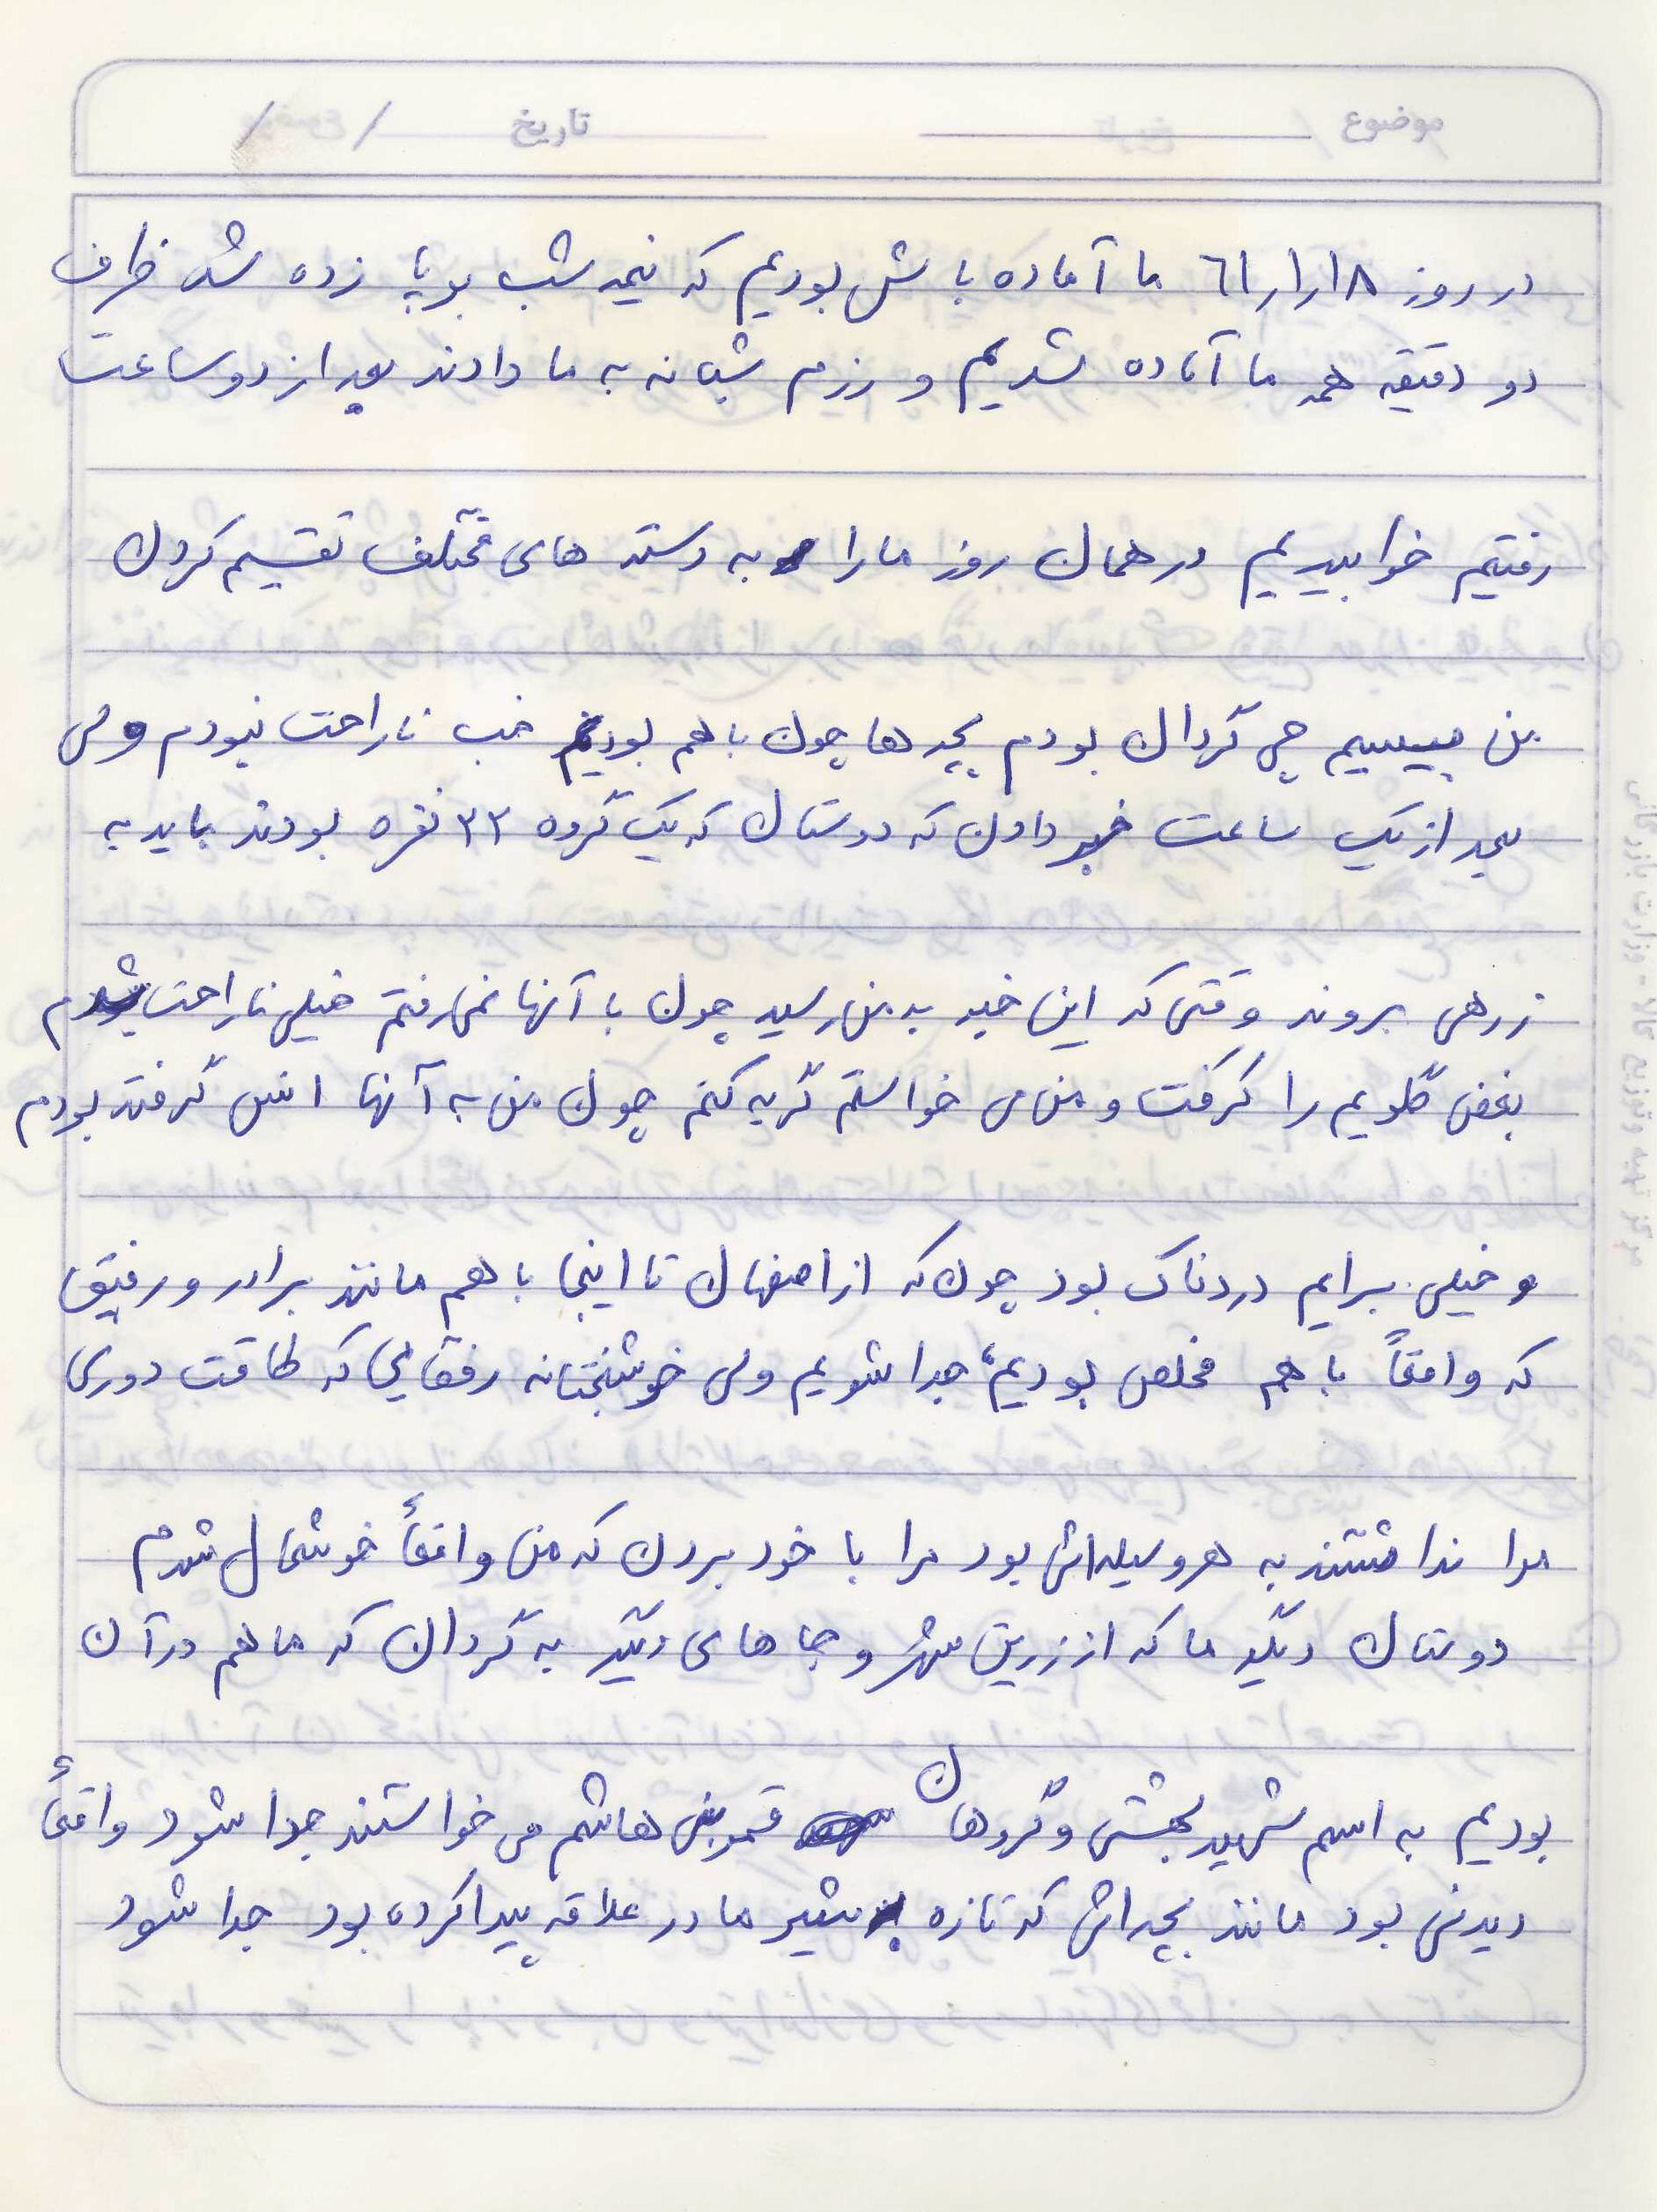 موضوع تاریخ / /
در روز ۶۱/۱/۱۸ ما آماده باش بودیم که نیمه شب برپا زده شد ظرف
دو دقیقه همه ما آماده شدیم و رزم شبانه به ما دادند بعد از دو ساعت
رفتیم خوابیدیم در همان روز ما را به دسته های مختلف تقسیم کردن
من بیسیم چی گردان بودم بچه ها چون با هم بودیم خب ناراحت نبودم ولی
بعد از یک ساعت خبر دادن که دوستان که یک گروه ۲۲ نفره بودند باید به
زرهی بروند وقتی که این خبر به من رسید چون با آنها نمی رفتم خیلی ناراحت شدم
بغض گلویم را گرفت و من می خواستم گریه کنم چون من به آنها انس گرفته بودم
و خیلی برایم دردناک بود چون که از اصفهان تا اینجا با هم مانند برادر و رفیق
که واقعاً با هم مخلص بودیم، جدا شویم ولی خوشبختانه رفقایی که طاقت دوری
مرا نداشتند به هر وسیله‌اش بود مرا با خود بردن که من واقعاً خوشحال شدم
دوستان دیگر ما که از زرین شهر و جاهای دیگر به گردان که ما هم در آن
بودیم به اسم شهید بهشتی و گردهان قمر بنی هاشم می خواستند جدا شود واقعاً
دیدنی بود مانند بچه‌اش که تازه به شیر مادر علاقه پیدا کرده بود جدا شود